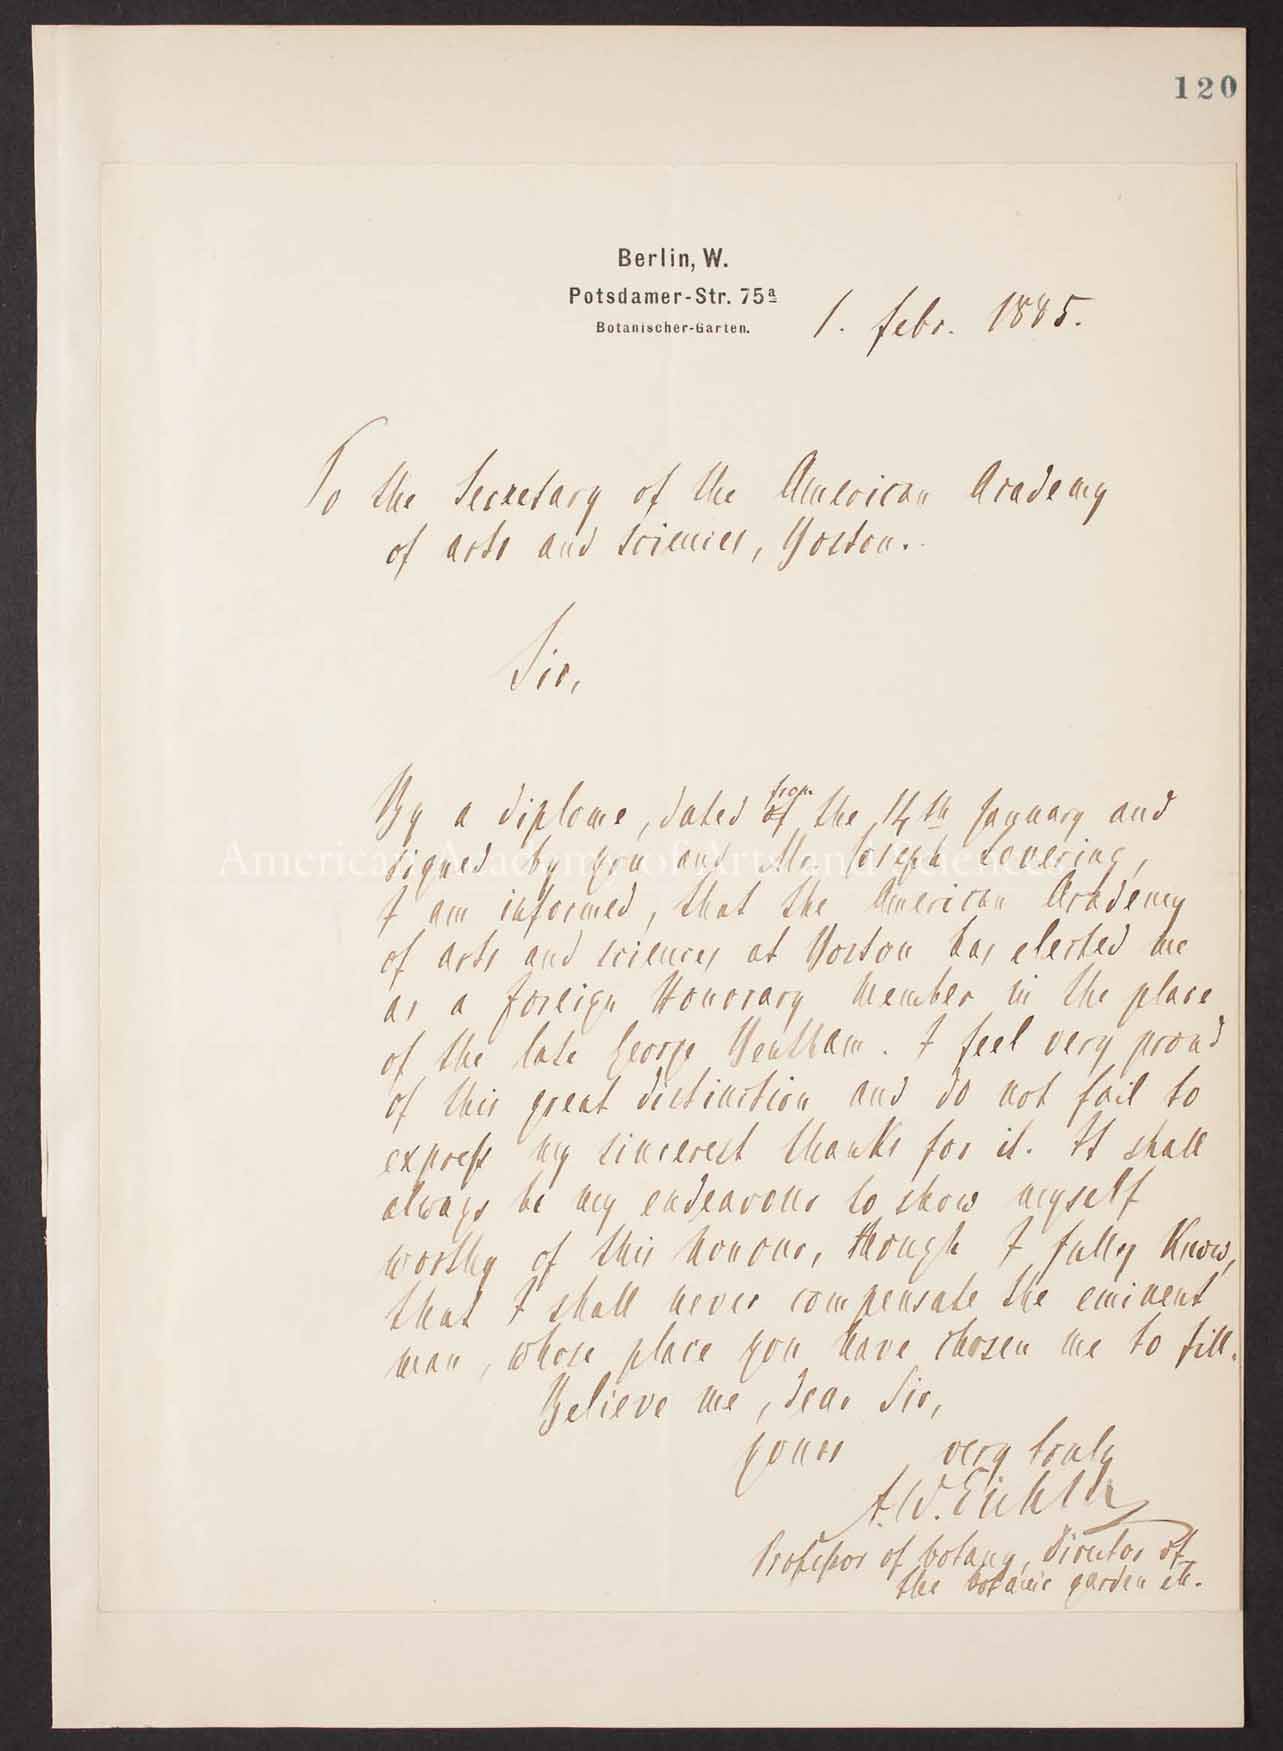 120
Berlin, W.
Potsdamer-Str. 75a
Botanischer-Garten.
1. febr. 1885.
To the Secretary of the American Academy
of arts and sciences, Boston.
Sir,
By a diplome, dated of from the 14th January and
signed by you and Mr. Joseph Lovering,
I am informed, that the American Academy
of arts and sciences at Boston has elected me
as a foreign Honorary Member in the place
of the late George Bentham. I feel very proud
of this great distinction and do not fail to
express my sincerest thanks for it. It shall
always be my endeavour to show myself
worthy of this honour, though I fully Know,
that I shall never compensate the eminent
man, whose place you have chosen me to fill.
Believe me, dear Sir,
yours very truly
A. W. Eichler
Professor of botany, Director of
the botanic garden etc.
American Academy of Arts and Sciences